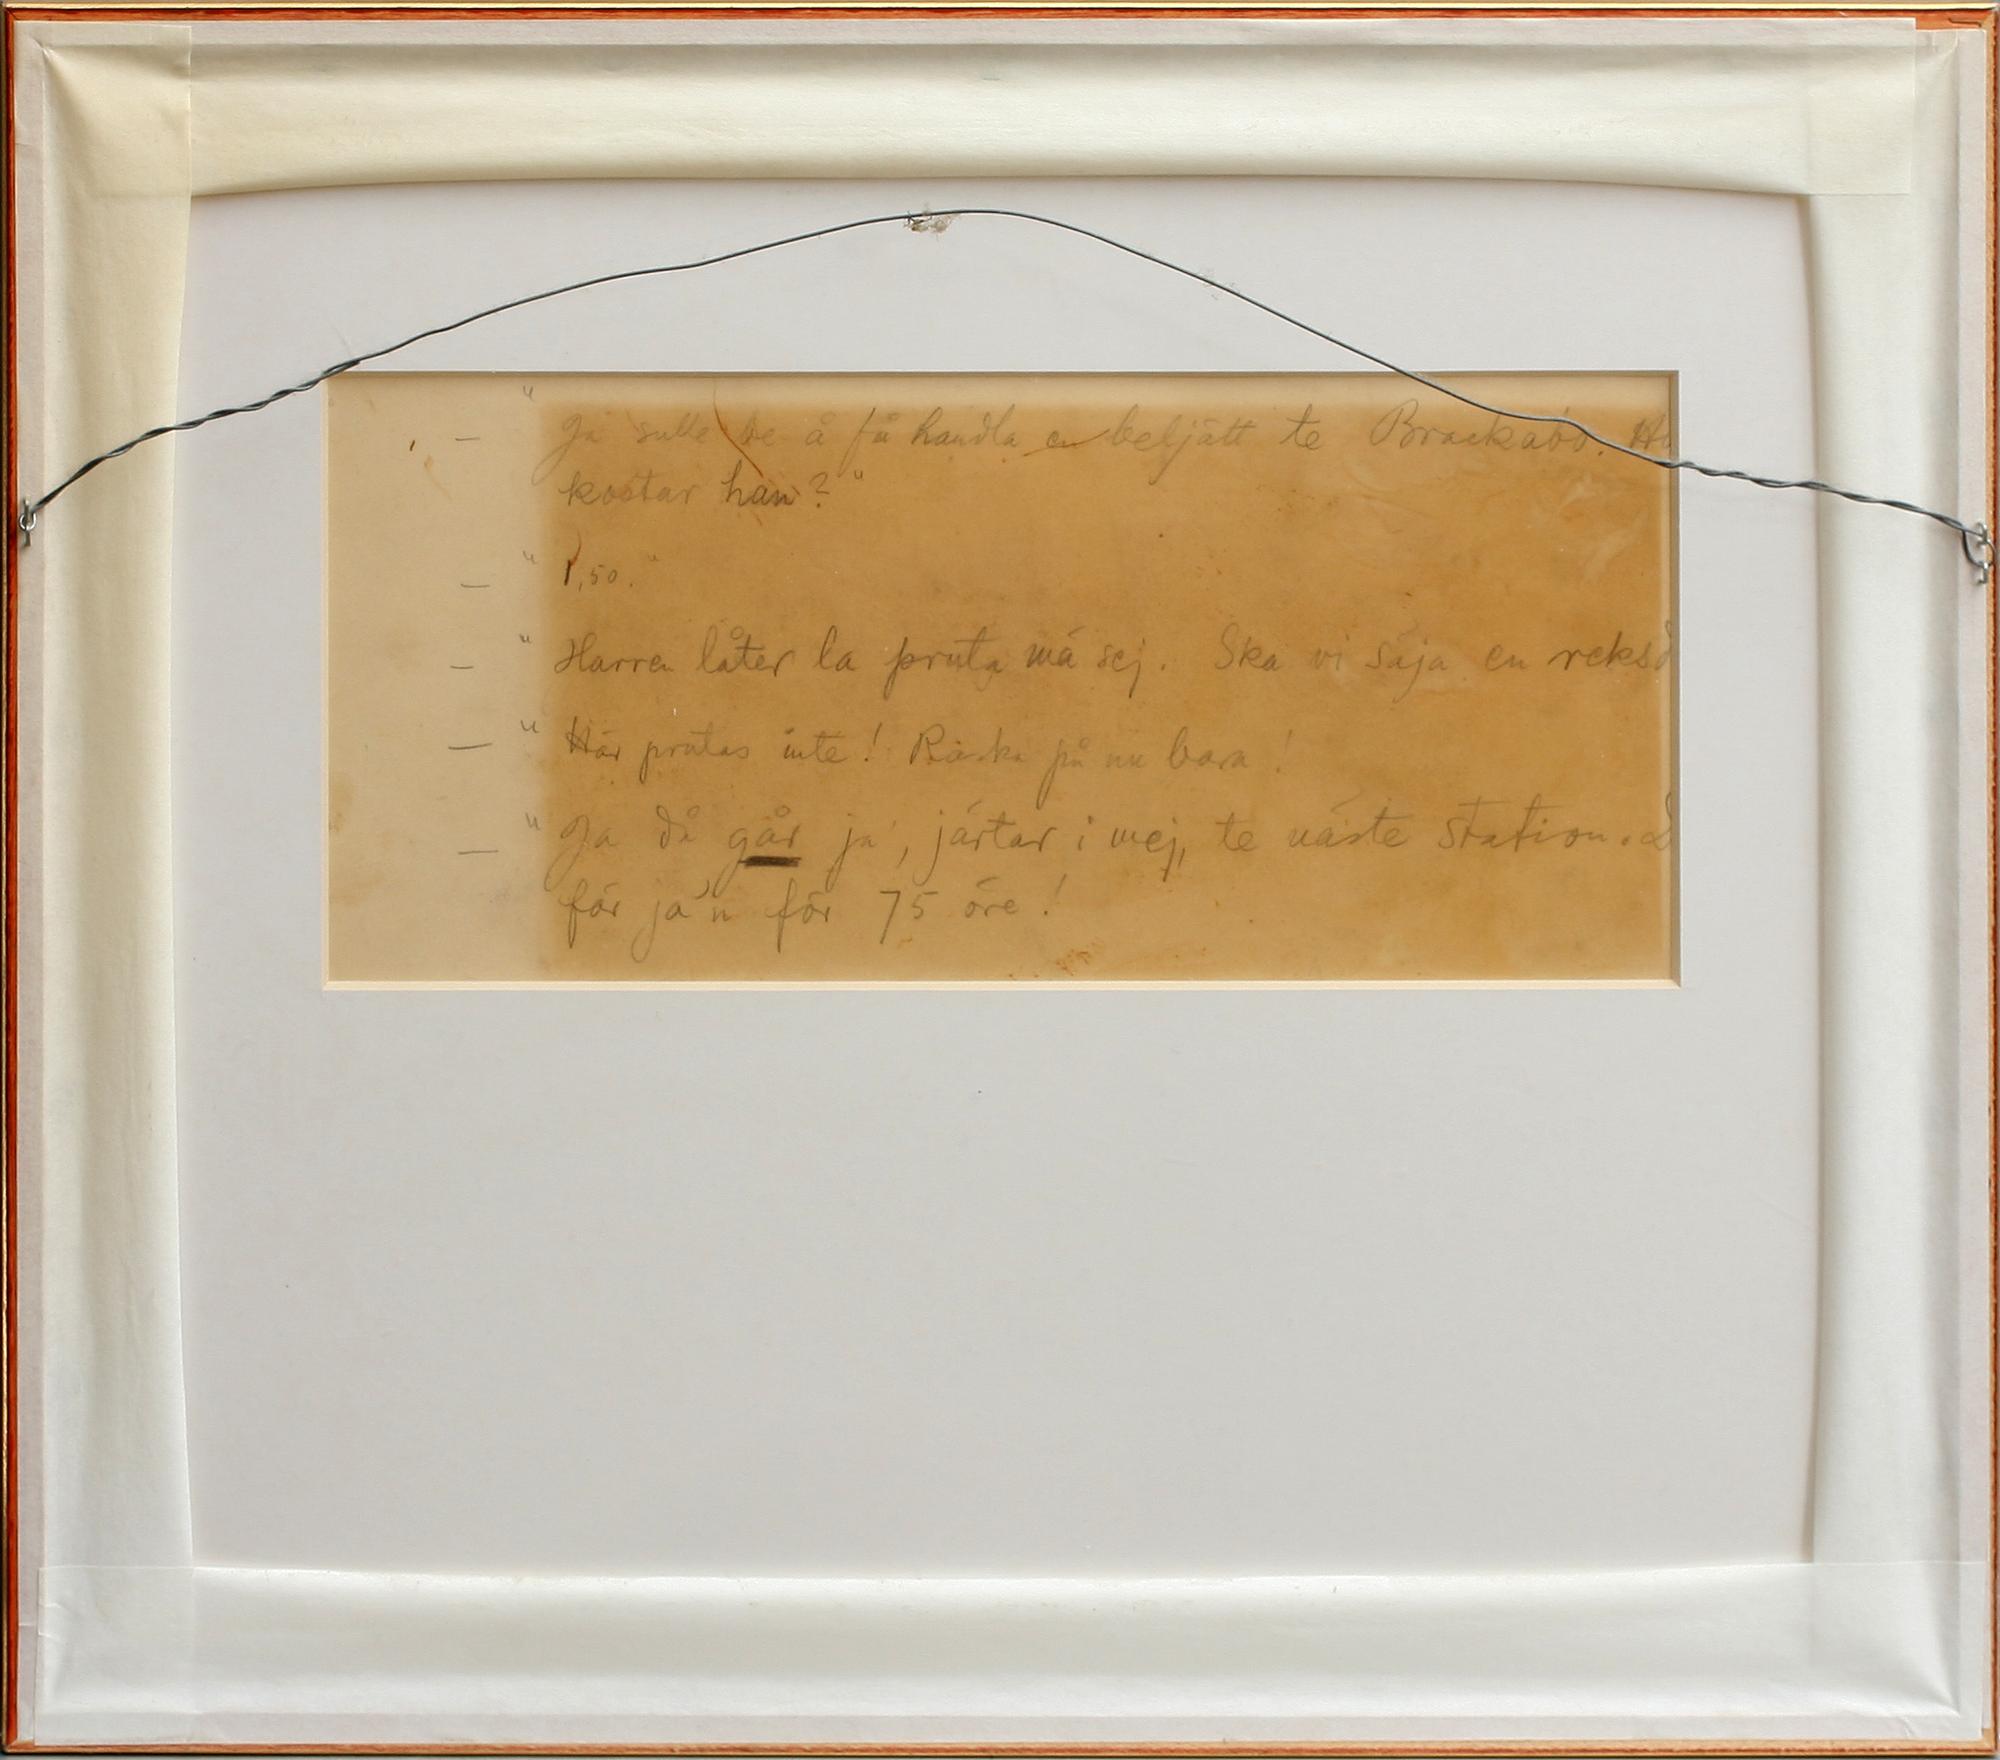 — "Ja sulle be å få handla en beljätt te Brackabo. Hu
kostar han?"
— "1,50."
— "Harren låter la pruta mä sej. Ska vi säja en reksd
— "Här prutas inte! Raska på nu bara!
— "Ja då går ja, järtar i mej, te näste station. D
får ja'n för 75 öre!